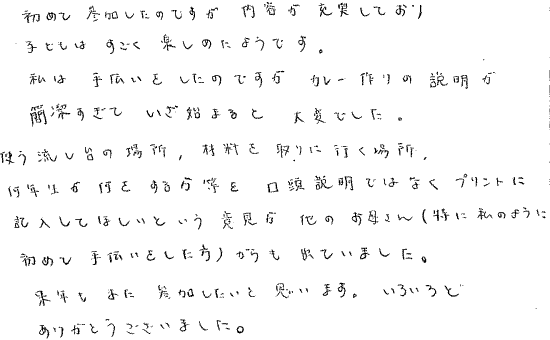 初めて参加したのですが内容が充実しており
子どもはすごく楽しめたようです。
私は手伝いをしたのですがカレー作りの説明が
簡潔すぎていざ始まると大変でした。
使う流し台の場所,材料を取りに行く場所,
何年生が何をするか等を口頭説明ではなくプリントに
記入してほしいという意見が他のお母さん(特に私のように
初めて手伝いをした方)からも出ていました。
来年もまた参加したいと思います。いろいろと
ありがとうございました。